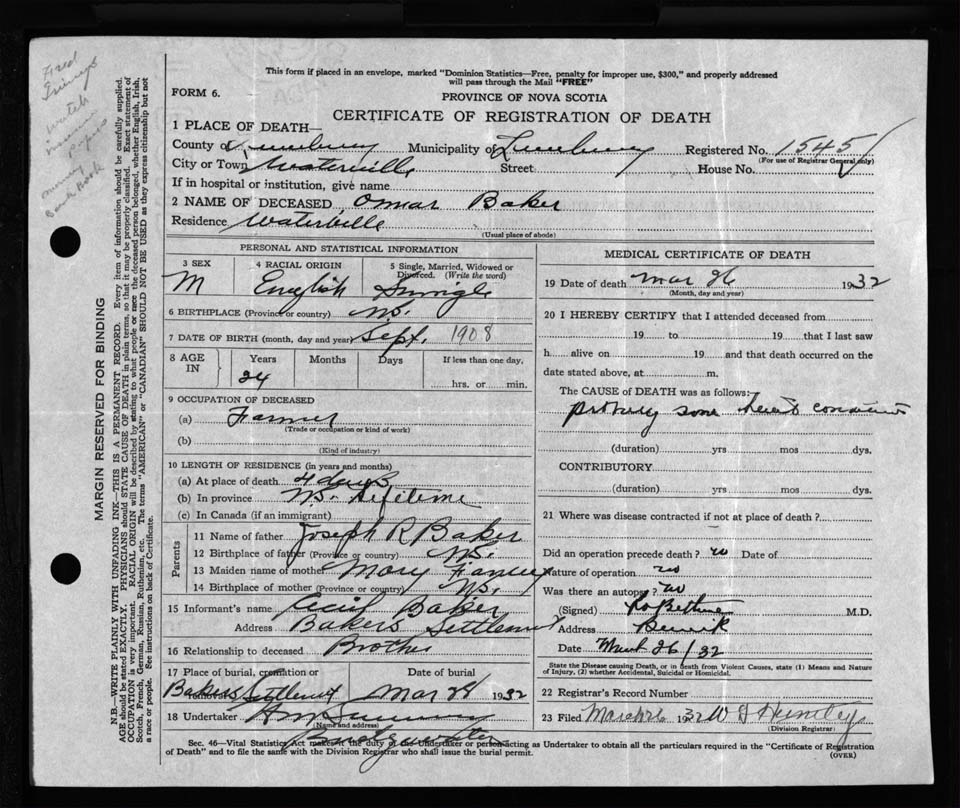 This form if placed in an envelope, marked "Dominion Statistics—Free, penalty for improper use, $300," and properly addressed
will pass through the Mail "FREE"
FORM 6.
PROVINCE OF NOVA SCOTIA
CERTIFICATE OF REGISTRATION OF DEATH
1 PLACE OF DEATH—
County of Lunenburg Municipality of Lunenburg Registered No. 1545
(For use of Registrar General only)
City or Town Waterville Street House No.
If in hospital or institution, give name
2 NAME OF DECEASED Omar Baker
Residence Waterville
(Usual place of abode)
PERSONAL AND STATISTICAL INFORMATION
3 SEX 4 RACIAL ORIGIN 5 Single, Married, Widowed or Divorced. (Write the word)
M English Single
6 BIRTHPLACE (Province or country) NS.
7 DATE OF BIRTH (month, day and year) Sept. 1908
8 AGE IN Years Months Days If less than one day,
24 hrs. or min.
9 OCCUPATION OF DECEASED
(a) Farmer
(Trade or occupation or kind of work)
(b)
(Kind of industry)
10 LENGTH OF RESIDENCE (in years and months)
(a) At place of death 4 days
(b) In province NS. Lifetime
(c) In Canada (if an immigrant)
Parents
11 Name of father Joseph R Baker
12 Birthplace of father (Province or country) NS.
13 Maiden name of mother Mary
14 Birthplace of mother (Province or country) NS.
15 Informant's name Cecil Baker
Address Bakers Settlement
16 Relationship to deceased Brother
17 Place of burial, cremation or removal Date of burial
Bakers Settlement Mar 28 1932
18 Undertaker
(Name and address)
Bridgewater
MEDICAL CERTIFICATE OF DEATH
19 Date of death Mar 26 1932
(Month, day and year)
20 I HEREBY CERTIFY that I attended deceased from
19 to 19 that I last saw
h alive on 19 and that death occurred on the
date stated above, at m.
The CAUSE of DEATH was as follows:
probably some heart
(duration) yrs mos dys.
CONTRIBUTORY
(duration) yrs mos dys.
21 Where was disease contracted if not at place of death?
Did an operation precede death? no Date of
Nature of operation no
Was there an autopsy? no
(Signed) Bethune M.D.
Address Berwick
Date Mar 26/32
State the Disease causing Death, or in death from Violent Causes, state (1) Means and Nature
of Injury, (2) whether Accidental, Suicidal or Homicidal.
22 Registrar's Record Number
23 Filed March 26 1932
(Division Registrar)
Sec. 46—Vital Statistics Act makes it the duty of the Undertaker or person acting as Undertaker to obtain all the particulars required in the "Certificate of Registration
of Death" and to file the same with the Division Registrar who shall issue the burial permit.
(OVER)
MARGIN RESERVED FOR BINDING
N.B.—WRITE PLAINLY WITH UNFADING INK—THIS IS A PERMANENT RECORD. Every item of information should be carefully supplied.
AGE should be stated EXACTLY. PHYSICIANS should STATE CAUSE OF DEATH in plain terms, so that it may be properly classified. Exact statement of
OCCUPATION is very important. RACIAL ORIGIN will be described by stating to what people or race the deceased person belonged, whether English, Irish,
Scotch, French, German, Russian, Ruthenian, etc. The terms "AMERICAN" or "CANADIAN" SHOULD NOT BE USED as they express citizenship but not
a race or people. See instructions on back of Certificate.
watch
Bank Book